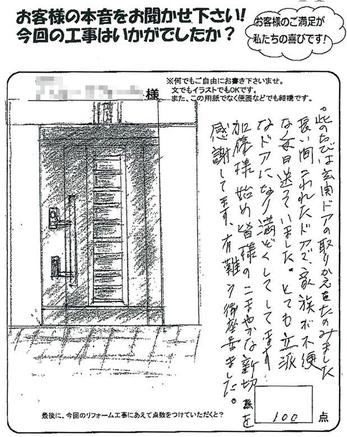 お客様の本音をお聞かせ下さい!
今回の工事はいかがでしたか?
お客様のご満足が
私たちの喜びです!
様
※何でもご自由にお書き下さいませ。
文でもイラストでもOKです。
また、この用紙でなく便箋などでも結構です。
。此のたびは玄関ドアの取りかえをたのみました
長い間こわれたドアで、家族が不便
な毎日送っていました。とても立派
なドアになり満ぞくしてします
加藤様始め皆様のこまやかな新切を
感謝してます。有難う御座ました。
最後に、今回のリフォーム工事にあえて点数をつけていただくと?
100 点